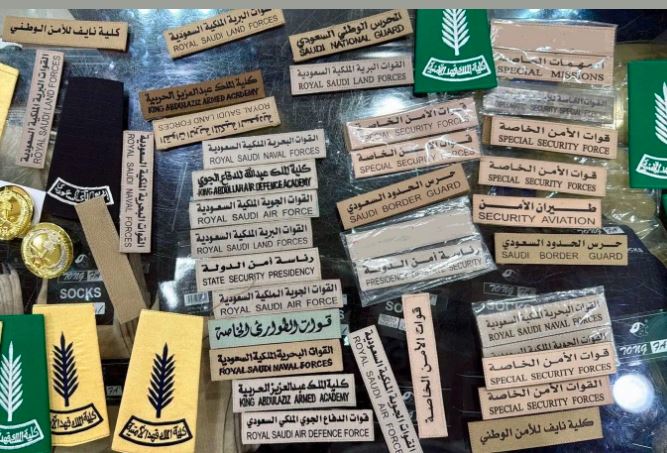 كلية نايف للأمن الوطني
القوات البرية الملكية السعودية
ROYAL SAUDI LAND FORCES
الحرس الوطني السعودي
SAUDI NATIONAL GUARD
القوات البرية الملكية السعودية
ROYAL SAUDI LAND FORCES
المهمات الخاصة
SPECIAL MISSIONS
القوات البرية الملكية السعودية
ROYAL SAUDI LAND FORCES
كلية الملك عبدالعزيز الحربية
KING ABDULAZIZ ARMED ACADEMY
القوات البرية الملكية السعودية
ROYAL SAUDI LAND FORCES
كلية الملك فهد الأمنية
قوات الأمن الخاصة
SPECIAL SECURITY FORCES
قوات الأمن الخاصة
SPECIAL SECURITY FORCES
قوات الأمن الخاصة
SPECIAL SECURITY FORCE
قوات الأمن الخاصة
SPECIAL SECURITY FORCES
القوات البحرية الملكية السعودية
ROYAL SAUDI NAVAL FORCES
القوات البحرية الملكية السعودية
ROYAL SAUDI NAVAL FORCES
كلية الملك عبدالله للدفاع الجوي
KING ABDULLAH AIR DEFENCE ACADEMY
القوات الجوية الملكية السعودية
ROYAL SAUDI AIR FORCE
القوات البرية الملكية السعودية
ROYAL SAUDI LAND FORCES
رئاسة أمن الدولة
STATE SECURITY PRESIDENCY
القوات الجوية الملكية السعودية
ROYAL SAUDI AIR FORCE
حرس الحدود السعودي
SAUDI BORDER GUARD
طيران الأمن
SECURITY AVIATION
حرس الحدود السعودي
SAUDI BORDER GUARD
رئاسة أمن الدولة
PRESIDENCY OF STATE SECURITY
SOCKS
قوات الطوارئ الخاصة
القوات البحرية الملكية السعودية
ROYAL SAUDI NAVAL FORCES
كلية الملك عبدالعزيز الحربية
KING ABDULAZIZ ARMED ACADEMY
قوات الدفاع الجوي الملكي السعودي
ROYAL SAUDI AIR DEFENCE FORCE
القوات الجوية الملكية السعودية
ROYAL SAUDI AIR FORCE
قوات الأمن الخاصة
القوات البحرية الملكية السعودية
ROYAL SAUDI NAVAL FORCES
قوات الأمن الخاصة
SPECIAL SECURITY FORCES
القوات الخاصة
SPECIAL SECURITY FORCES
كلية نايف للأمن الوطني
SOCKS
كلية الملك فهد الأمنية
كلية الملك فهد الأمنية
كلية الملك فهد الأمنية